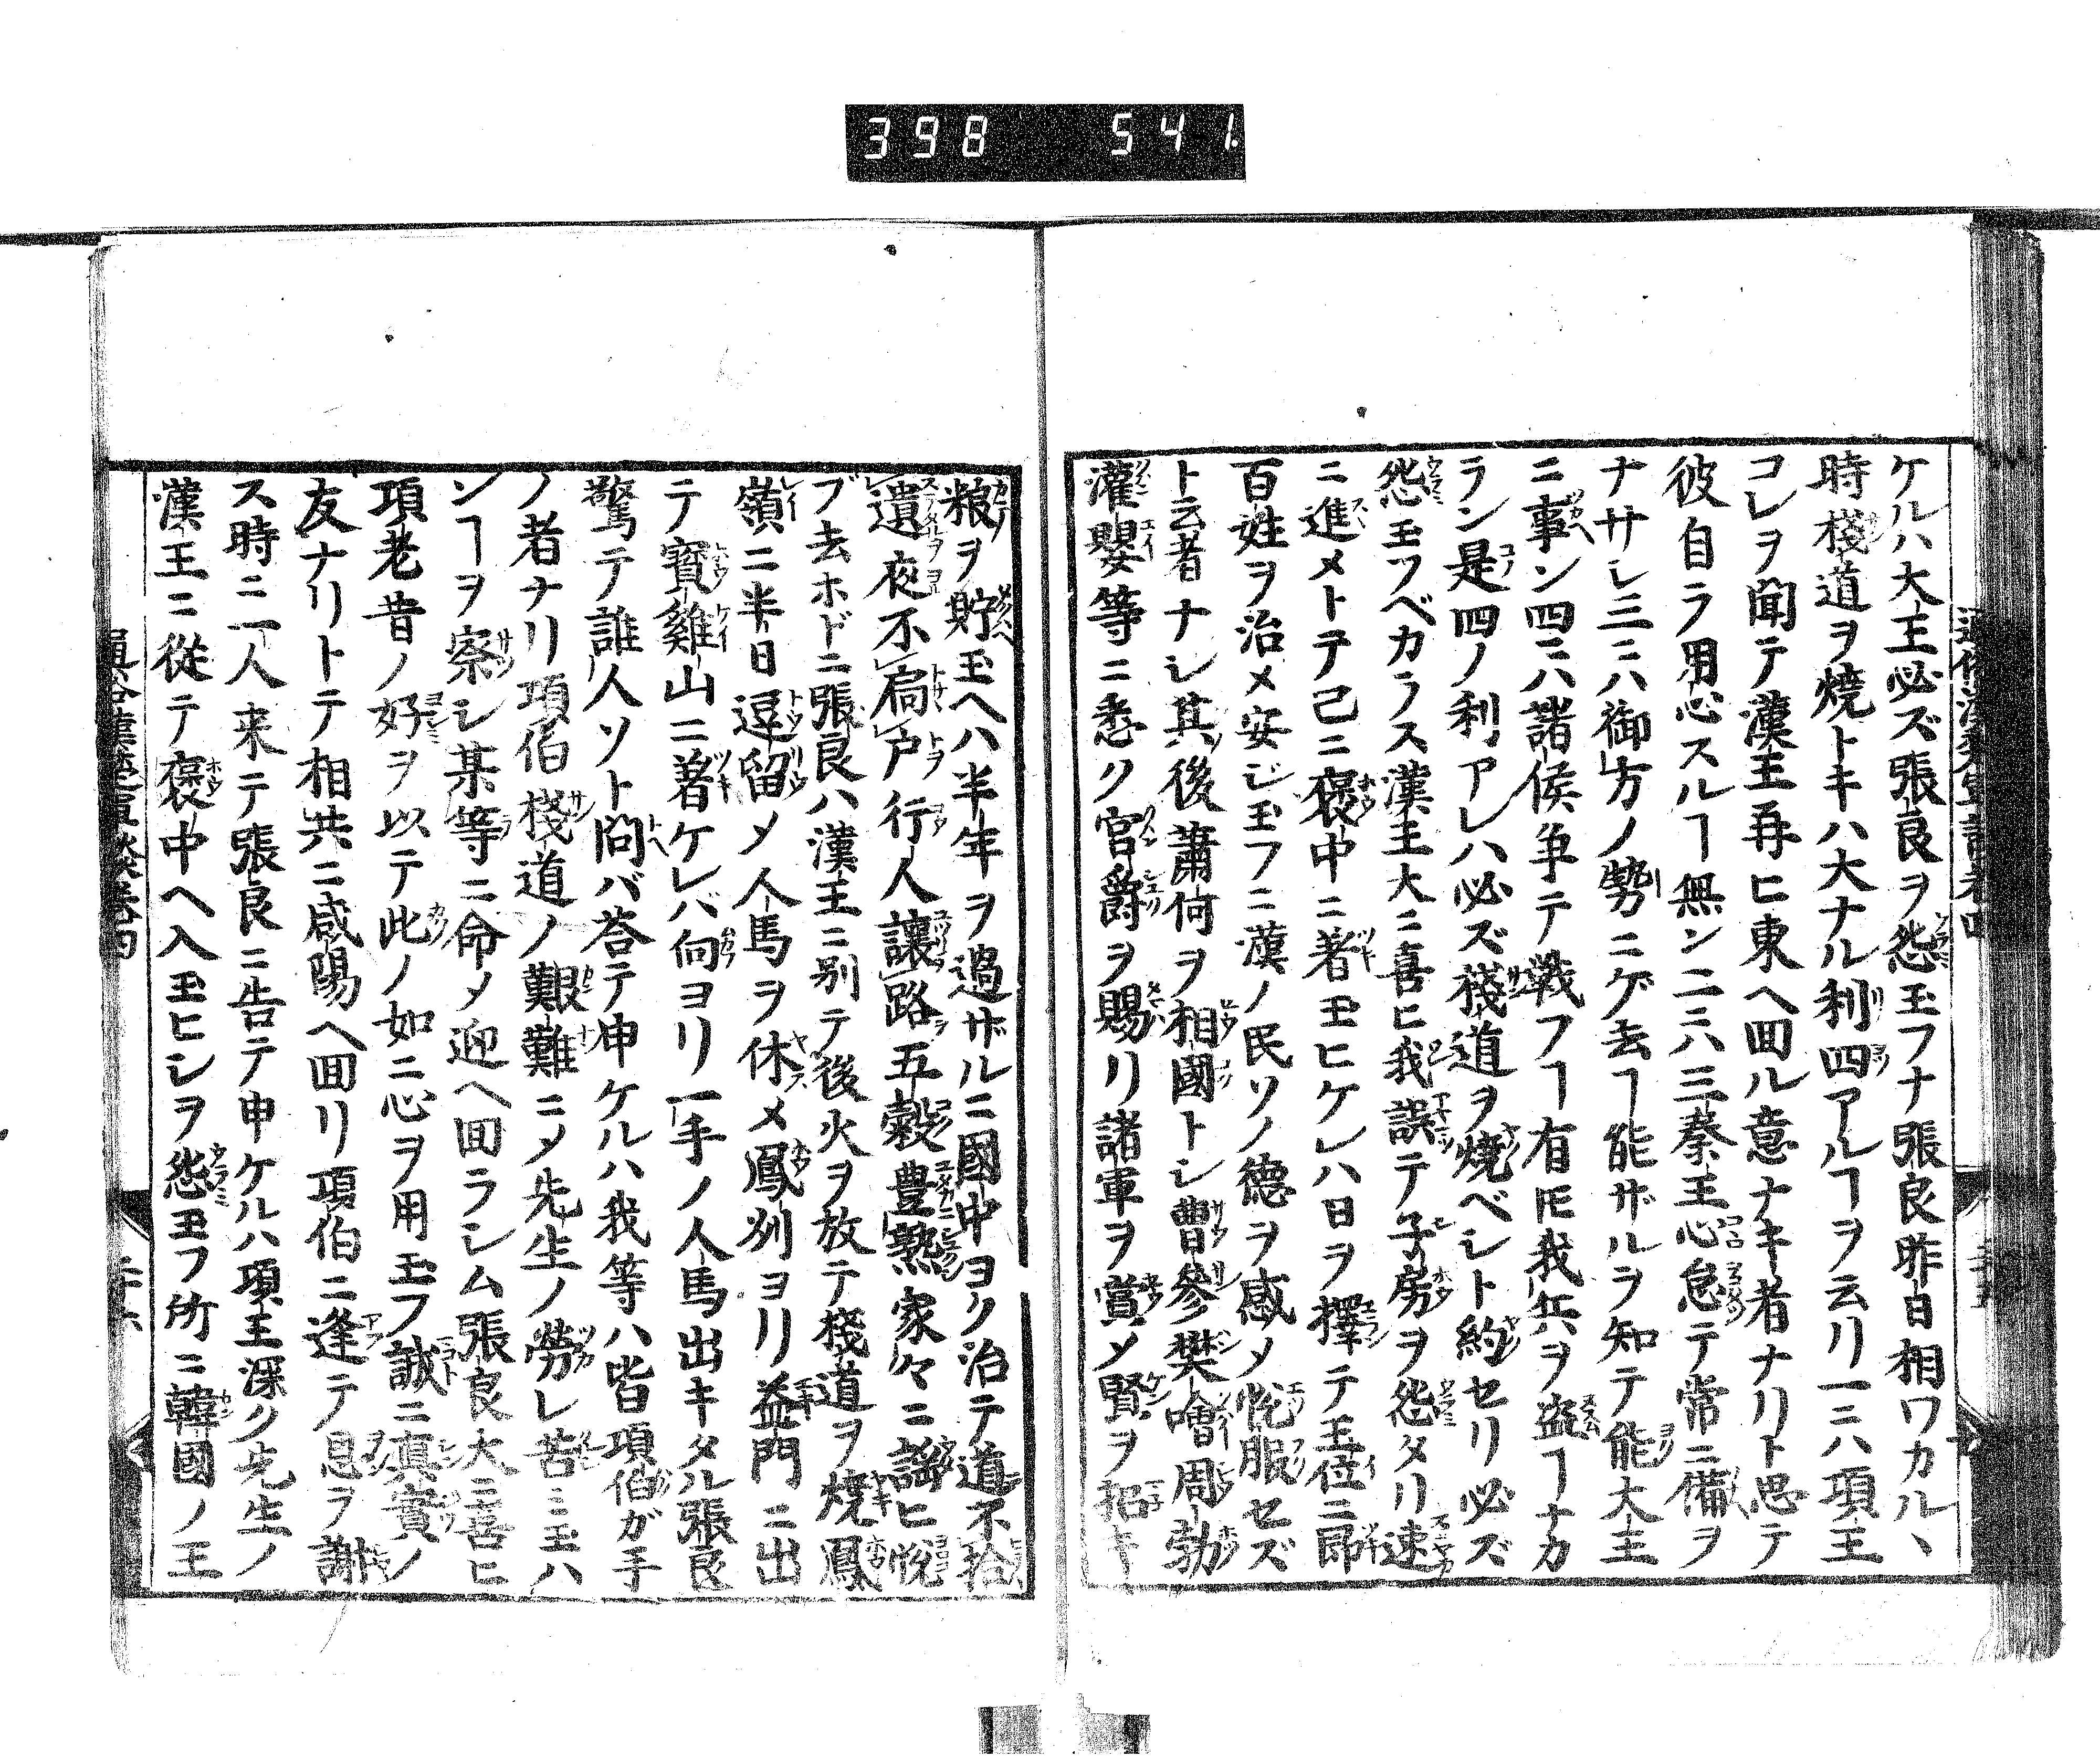 398 541
ケルハ大王必ズ張良ヲ怨玉フナ張良昨日相ワカルヽ
時棧道ヲ燒トキハ大ナル利四アルヿヲ云リ一ニハ項王
コレヲ聞テ漢王再ヒ東ヘ囬ル意ナキ者ナリト思テ
彼自ラ用心スルヿ無ン二ニハ三秦王心怠テ常ニ備ヲ
ナサレ三ニハ御方ノ勢ニゲ去ヿ能ザルヲ知テ能大王
ニ事ン四ニハ諸侯争テ戦フヿ有𪜈我兵ヲ盗ヿナカ
ラン是四ノ利アレハ必ズ棧道ヲ燒ベシト約セリ必ズ
怨玉フベカラス漢王大ニ喜ヒ我誤テ子房ヲ怨タリ速
ニ進メトテ已ニ襃中ニ著玉ヒケレハ日ヲ擇テ王位ニ即
百姓ヲ治メ安ジ玉フニ漢ノ民ソノ德ヲ感メ悦服セズ
ト云者ナシ其後蕭何ヲ相國トシ曹參樊噲周勃
灌嬰等ニ悉ク官爵ヲ賜リ諸軍ヲ賞メ賢ヲ招キ
粮ヲ貯玉ヘハ半年ヲ過ザルニ國中ヨク治テ道不拾
遺夜不扃戸行人讓路五穀豊熟家々ニ謡ヒ悦
ブ去ホドニ張良ハ漢王ニ别テ後火ヲ放テ棧道ヲ燒鳳
嶺ニ半日逗留メ人馬ヲ休メ鳳州ヨリ益門ニ出
テ寳雞山ニ著ケレバ向ヨリ一手ノ人馬出キタル張良
驚テ誰人ソト問バ荅テ申ケルハ我等ハ皆項伯ガ手
ノ者ナリ項伯棧道ノ艱難ニメ先生ノ勞レ苦ミ玉ハ
ンヿヲ察シ某等ニ命メ迎ヘ囬ラシム張良大ニ喜ヒ
項老昔ノ好ヲ以テ此ノ如ニ心ヲ用玉フ誠ニ真實ノ
友ナリトテ相共ニ咸陽ヘ囬リ項伯ニ逢テノ恩ヲ謝
ス時ニ一人来テ張良ニ告テ申ケルハ項王深ク先生ノ
漢王ニ從テ襃中ヘ入玉ヒシヲ怨玉フ所ニ韓國ノ王